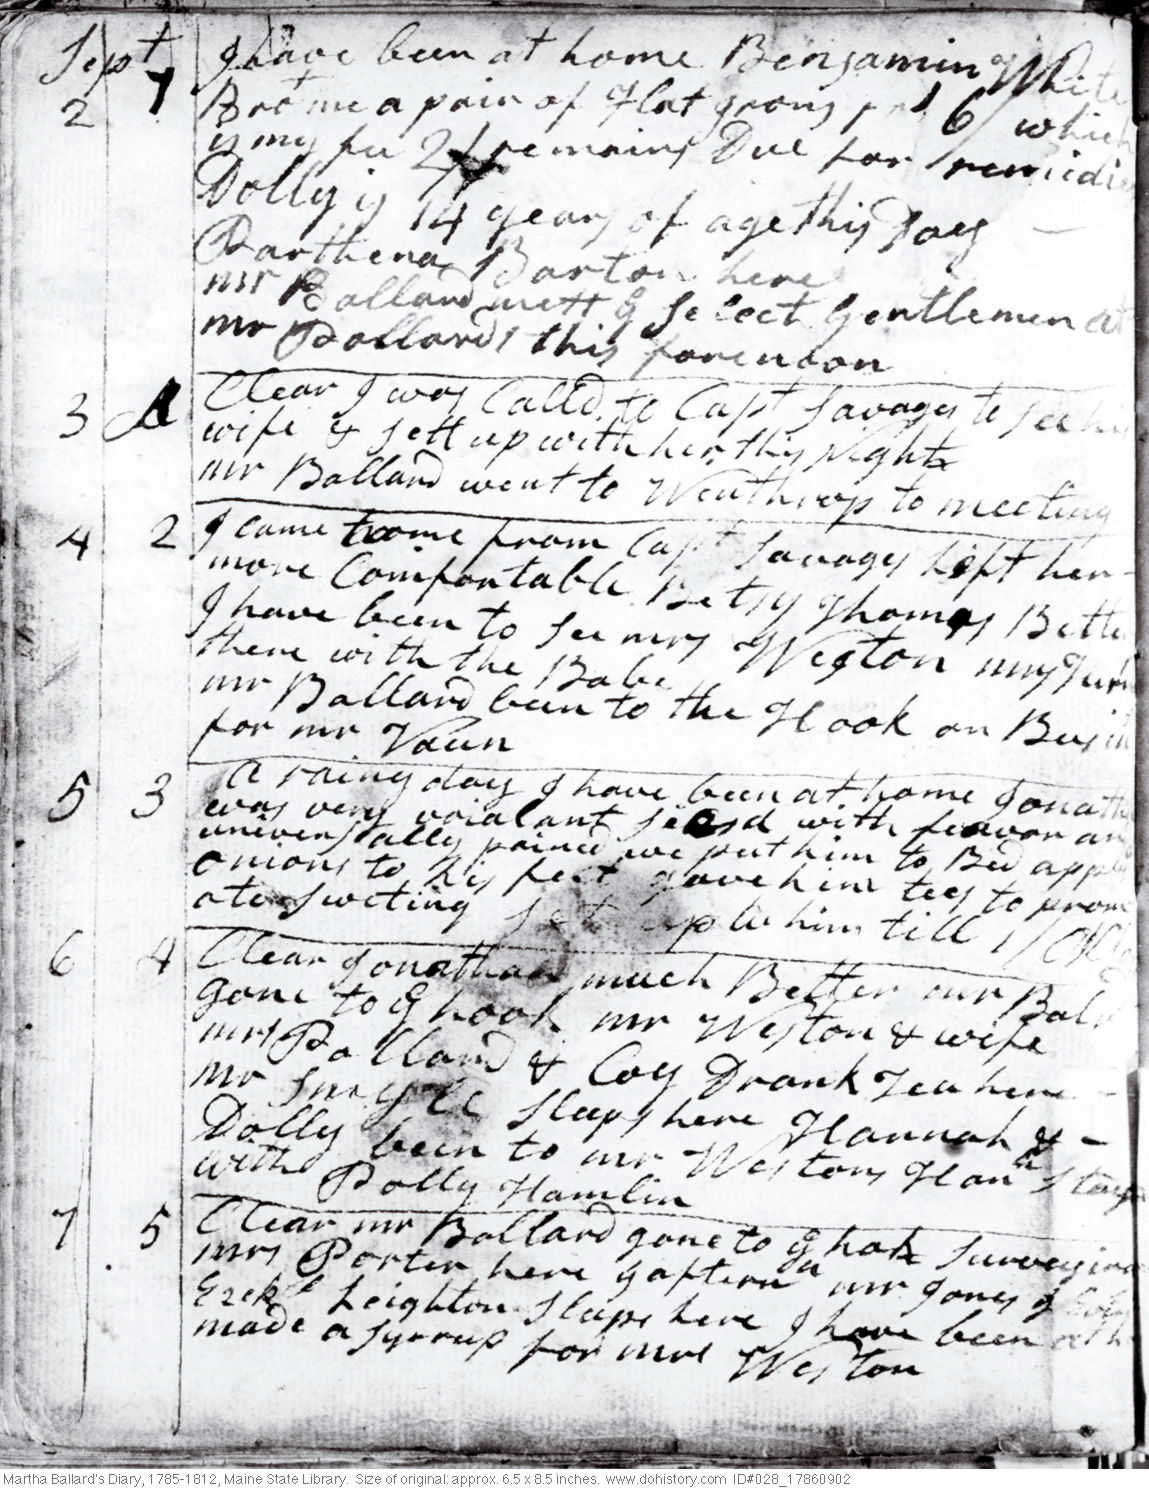 Sept
2 7 I have been at home Benjamin White
Brot me a pair of Flat Irons 6/ which
is my fee 2/ remains Due for remidies
Dolly is 14 years of age this Day
Parthena Barton here
mr Ballard mett ye Select Gentlemen at
mr Pollards this forenoon
3 A Clear I was Calld to Capt Savages to see his
wife & sett up with her this Night
mr Ballard went to Winthrop to meeting
4 2 I came home from Capt Savages left her
more Comfortable Betsy Thomas Better
I have been to see mrs Weston
there with the Babe
mr Ballard been to the Hook on
for mr Vaun
5 3 A rainy day I have been at home
was very seisd with feavor
universally pained we put him to Bed
onions to his feet gave him teas to
sweting up with him till 1
6 4 Clear Jonathan much Better mr
gone to ye hook mr Weston & wife
mrs Pollard & Coy Drank Tea here
mr Smyth Sleaps here Hannah &
Dolly been to mr Westons Hanh
with Polly Hamlin
7 5 Clear mr Ballard gone to ye hook
mrs Porter here ys aftern mr Jones
Ezekl Leighton Sleaps here I have been
made a syrrup for mrs Weston
Martha Ballard's Diary, 1785-1812, Maine State Library. Size of original: approx. 6.5 x 8.5 inches. www.dohistory.com ID#028_17860902